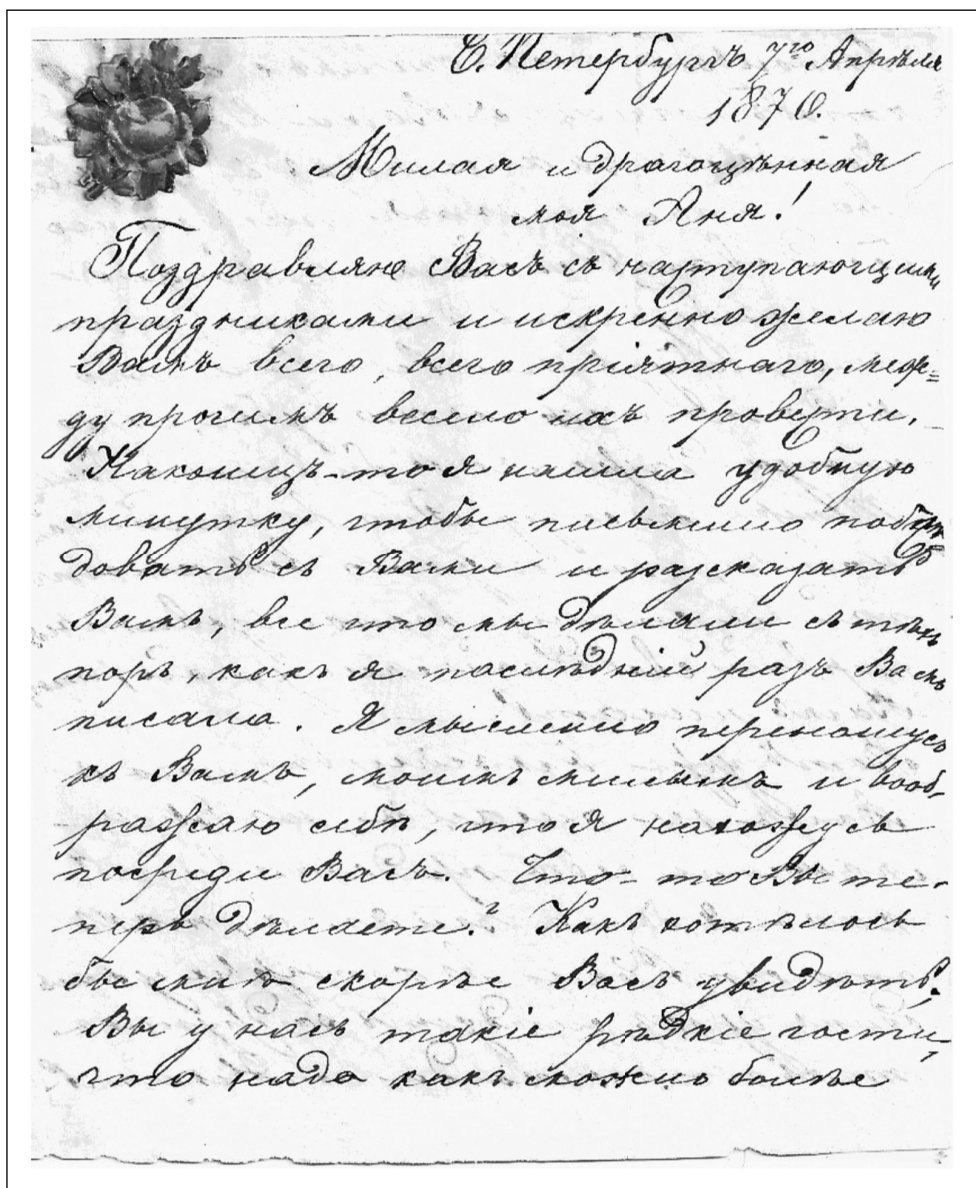 С. Петербургъ 7го Апрѣля
1870.
Милая и драгоцѣнная
моя Аня!
Поздравляю Васъ съ наступающими
праздниками и искренно желаю
Вамъ всего, всего пріятнаго, меж=
ду прочимъ весело ихъ провести.
Наконецъ-то я нашла удобную
минутку, чтобы письменно побѣсѣ
довать съ Вами и разсказать
Вамъ, все что мы дѣлали съ тѣхъ
поръ, какъ я послѣдній разъ Вамъ
писала. Я мысленно переношусь
къ Вамъ, моимъ милымъ и вооб-
ражаю себѣ, что я нахожусь
посреди Васъ. Что-то Вы те-
перь дѣлаете? Какъ хотѣлось
бы мнѣ скорѣе Васъ увидѣть.
Вы у насъ такіе рѣдкіе гости,
что надо какъ можно болѣе